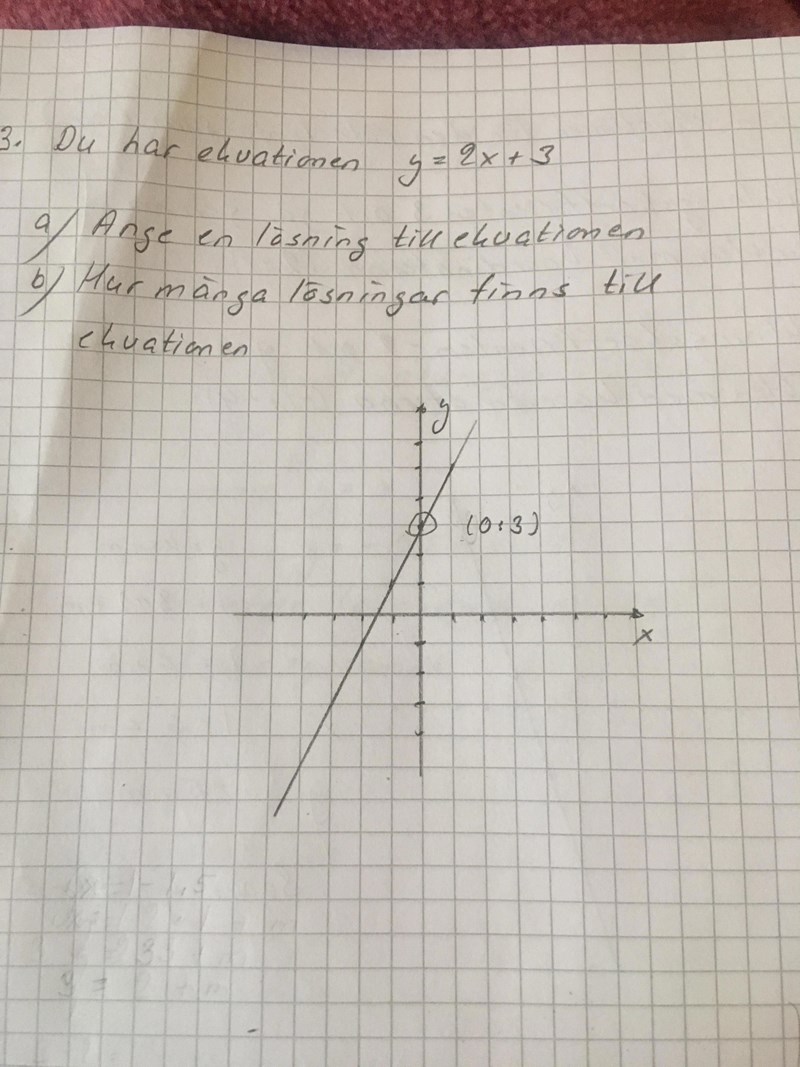 3. Du har ekvationen y = 2x + 3
a) Ange en lösning till ekvationen
b) Hur många lösningar finns till
ekvationen
y
(0:3)
x